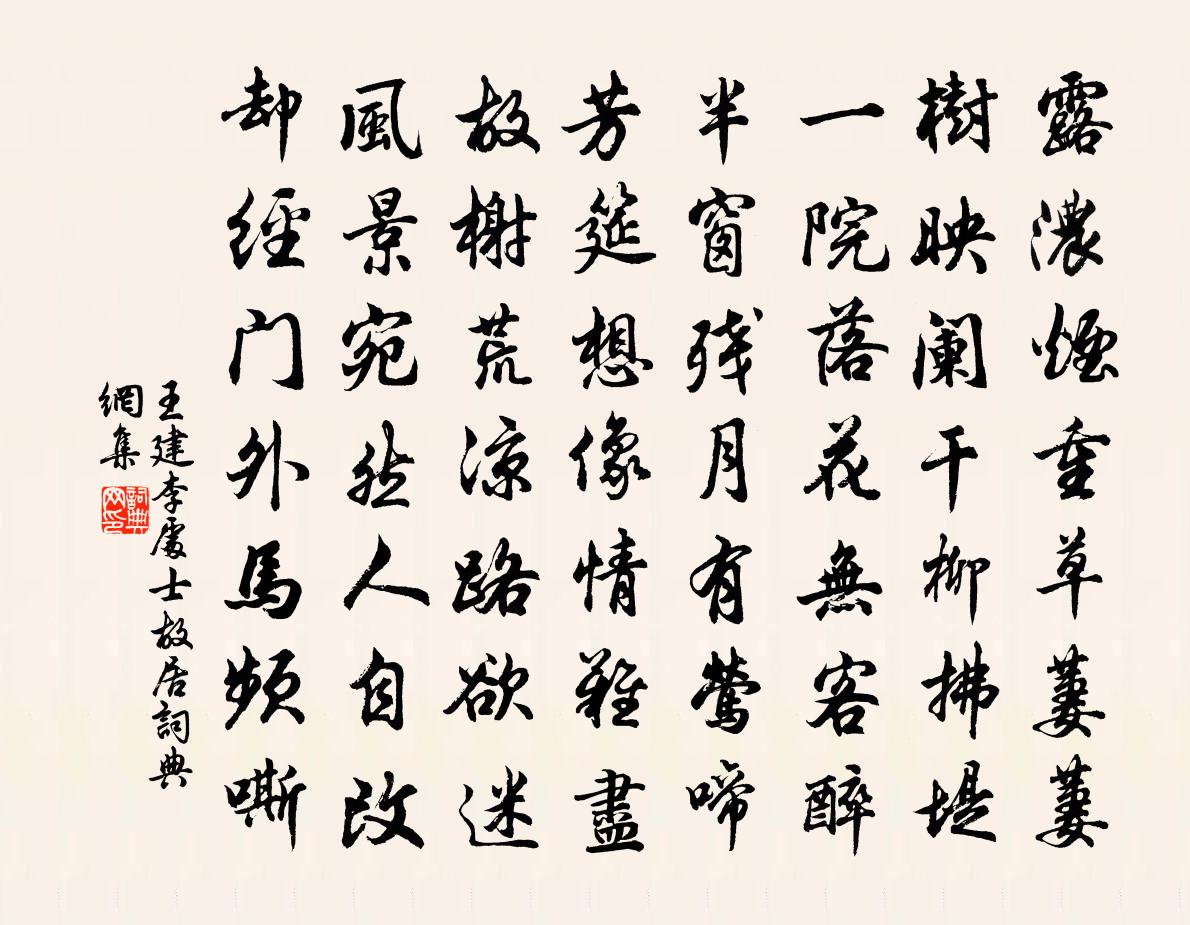 露濃煙重草萋萋
樹映闌干柳拂堤
一院落花無客醉
半窗殘月有鶯啼
芳筵想像情難盡
故榭荒涼路欲迷
風景宛然人自改
却經门外馬頻嘶
王建李處士故居詞典
網集
詞典
网印